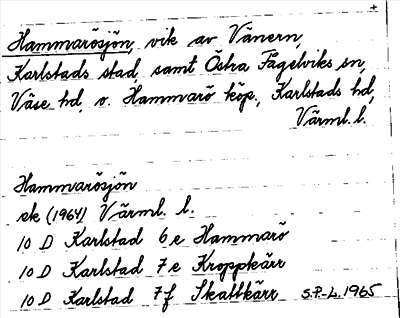 Hammarösjön, vik av Vänern,
Karlstads stad, samt Östra Fågelviks sn,
Väse hd, o. Hammarö köp., Karlstads hd,
Värml. l.
Hammarösjön
ek (1964) Värml. l.
10 D Karlstad 6 e Hammarö
10 D Karlstad 7 e Kroppkärr
10 D Karlstad 7 f Skattkärr S.P.-L. 1965